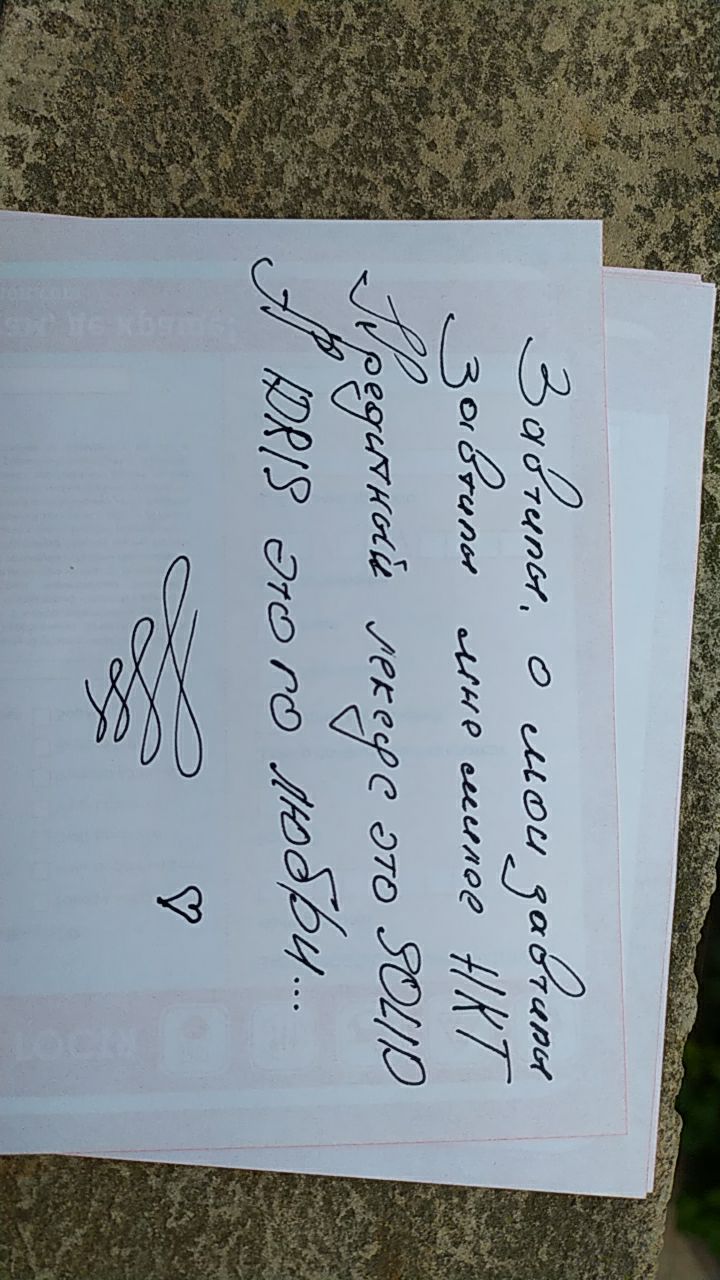 Завтипы, о мои завтипы
Завтипы мне милое НКТ
Предитный лексус это SOLID
Ну IDRIS это го любви...